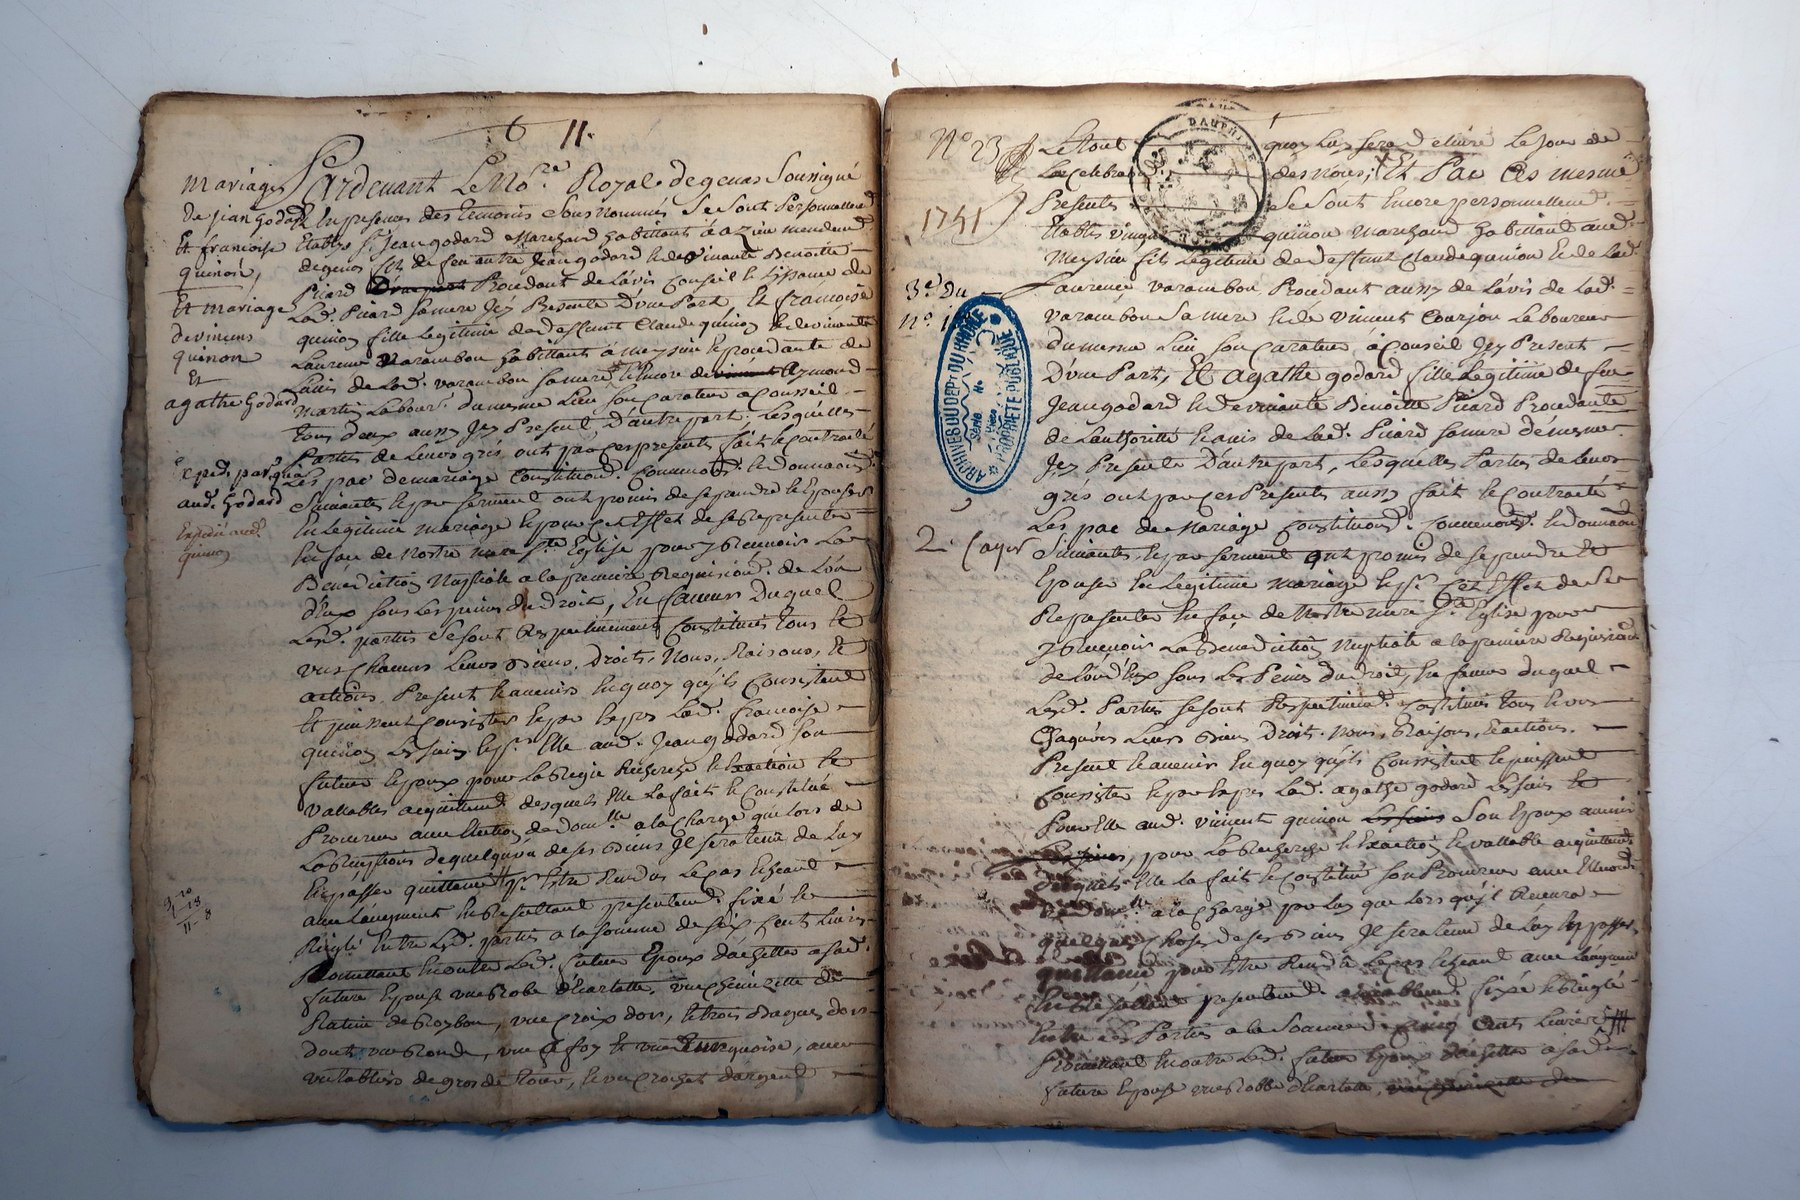 6 11.
mariages
de jean godard
Et francoise
quinon,
Et mariage
de vincens
quinon
Et
agathe Godard
aud. Godard
Expedié aud.
quinon
Pardevant Le No.re Royal de genas Soussigné
Et En presence des temoins Sousnommés Se Sont Personnellemt
Etablis Sr. Jean godard Marchand habittant à azieu mandemt
de genas fils de feu autre Jean godard et de vivante Benoitte
Picard Procedant de Lavis Conseil et Lissance de
Lad. Picard Sa mere Jcy Presente D'une Part, Et francoise
quinon fille Legitime de deffunt Claude quinon et de vivante
Laurence Varambon habittante à Meysieu et procedante de
Lavis de Lad. varambon sa mere et Encore de Aymond
Martin Labour. du mesme Lieu son curateur à Conseil
tous deux aussy Jcy Present, D'autre part. Lesquelles
Parties de Leurs grés, ont par ces presents fait Le Contract et
Les pac de mariage Constitution. Conventions. et donnaons.
Suivantes et par serment ont promis de se prendre et Epouser
En Legitime mariage et pour cet Effet de se Representer
En face de Nostre mere Ste Eglise pour y Recevoir La
Benediction Nuptiale a la premiere Requision. de L'un
d'Eux sous Les peines du Droit, En faveur Duquel
Lesd. parties se sont Respectivement Constitués tous Et
uns Chacuns Leurs Biens, Droits, Noms, Raisons, Et
actions, Present et avenirs En quoy qu'ils Consistent
Et puissent Consister et par Exprès Lad. francoise
quinon Les siens et pr. Elle aud. Jean godard son
futur Epoux pour La Regie Recherche et Exaction et
vallables acquittemt. desquels Elle La fait et Constitué
Procureur avec Election de Domlle. a la Charge que Lors de
La Reception de quelqu'un de ses Biens Jl sera tenu de Luy
En passer quittance pr. Estre Rendus Le cas Echeant
avec Laugment En Resultant presentemt. fixé et
Reiglé Entre Lesd. parties a la somme de six Cent Livres
Promettant En outre Led. futur Epoux d'achetter a sad.
future Epouse une Robe d'Ecarlatte, une Chemizette de
Ratine de Roybon, une Croix d'or, et trois Bagues d'or
dont une Ronde, une a foy Et une Turquoise, avec
un tablier de gros de tour, et un Crochet d'argent
No 23
1741
3e. Du
No. 1
2. Cayer
DAUPHINE
ARCHIVES DU DÉPT DU RHÔNE
Série No
PROPRIÉTÉ PUBLIQUE
Le tout quoy Luy sera delivré Le jour de
La Celebra des nôces; Et Par Ces mesme
Presents Se Sont Encore personnellemt.
Etablis vincent quinon Marchand habittant aud.
Meysieu fils Legitime de deffunt Claude quinon et de Lad.
Laurence varambon Procedant aussy de Lavis de Lad.
varambon Sa mere et de vincent Courjon Laboureur
du mesme Lieu son Curateur a Conseil Jcy Present
D'une Part, Et agathe godard fille Legitime de feu
Jean godard et de vivante Benoitte Picard Procedante
de Lauthorité et avis de Lad. Picard sa mere de mesme
Jcy Presente D'autre part, Lesquelles Parties de Leurs
grés ont par ces Presents aussy fait Le Contract et
Les pac de Mariage Constitution. Convention. et donnaon
Suivantes et par serment ont promis de se prendre et
Epouser En Legitime mariage et pr. Cet Effet de se
Representer En face de Nostre mere Ste Eglise pour
y Recevoir La Benediction Nuptiale a la premiere Requision
de L'un d'Eux sous Les Peines du Droit, En faveur duquel
Lesd. Parties se sont Respectivemt. Constitués tous et uns
Chaquuns Leurs Biens Droit. Noms, Raisons, et actions,
Present et avenir En quoy qu'ils Consistent et puissent
Consister et par Exprès Lad. agathe godard Les siens et
Pour Elle aud. vincent quinon Son Epoux avenir
pour La Recherche et Exaction et vallable acquittemt
desquels Elle La fait et Constitué son Procureur avec Election
de Domlle. a la Charge par Luy que Lors qu'il Recevra
quelques choses de ses Biens Jl sera tenu de Luy En passer
quittance pour Estre Rendu Le cas Echeant avec Laugment
En Resultant presentemt. fixé et Reiglé
Entre Les Parties a la Somme de Cinq Cents Livres
Promettant En outre Led. futur Epoux d'achetter a sad.
future Epouse une Robbe d'Ecarlatte,